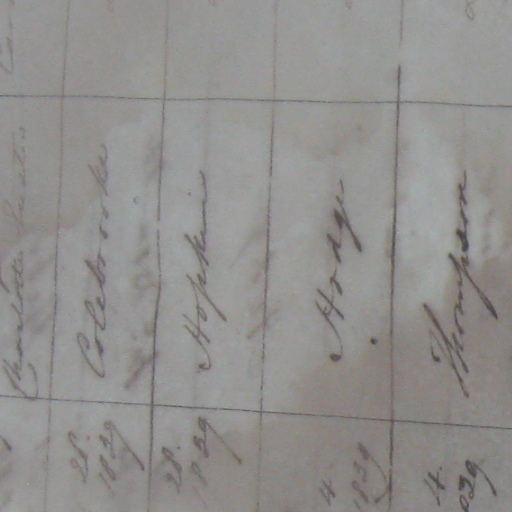 Charlotte
28.
1839
Colebrooke
28.
1839
Hopkins
4
1839
Hodge
4.
1839
Thompson